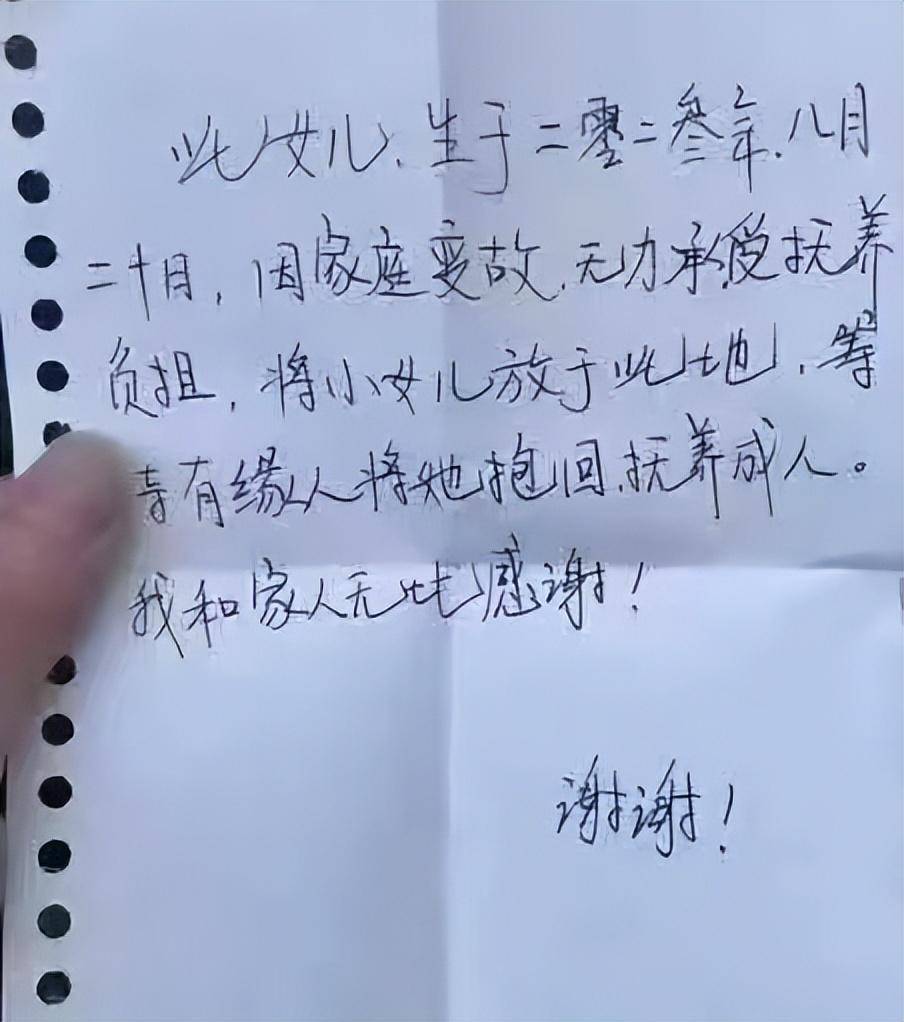 此女儿、生于二零二叁年.八月
二十月，因家庭变故,无力承受抚养
负担，将小女儿放于此地，等
待有缘人将她抱回,抚养成人。
我和家人无比感谢！
谢谢！